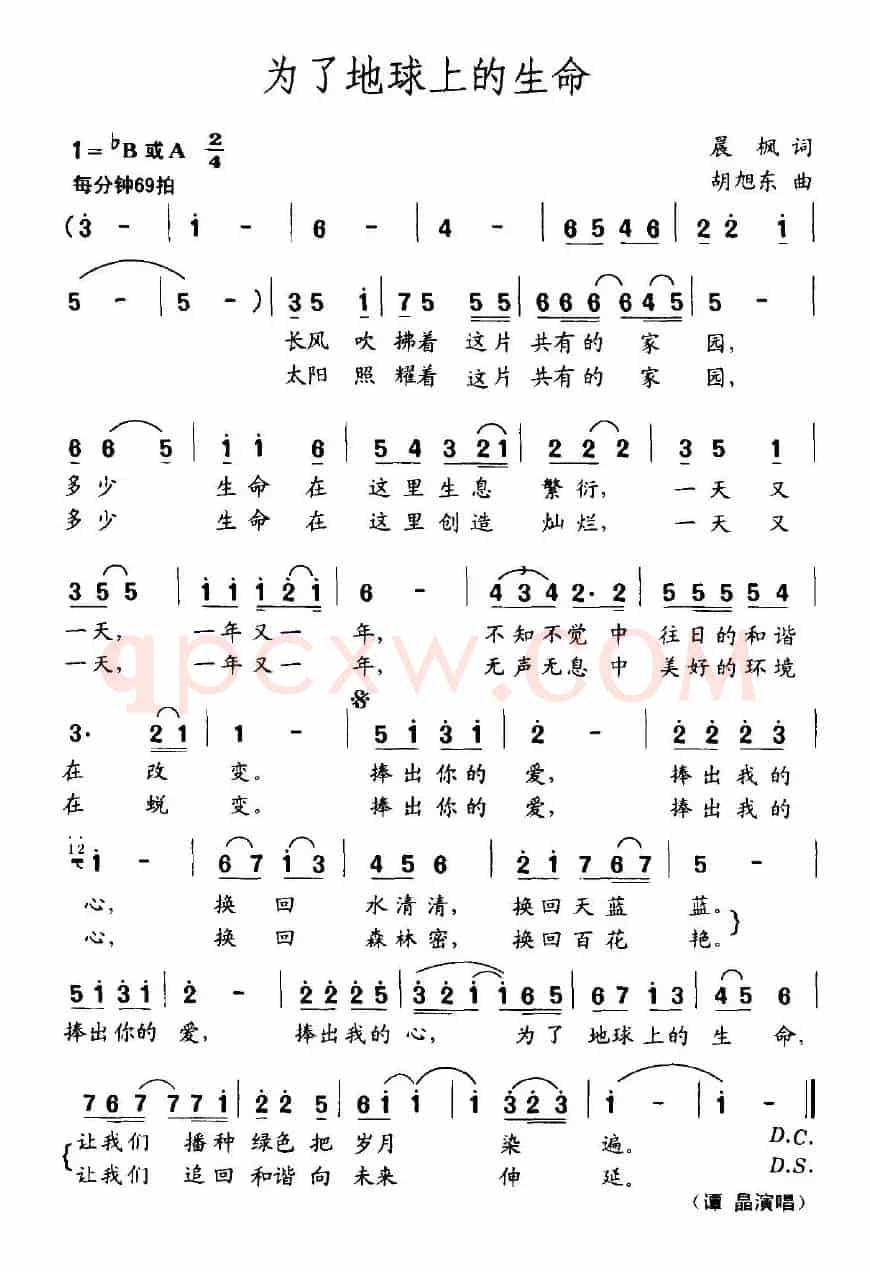 为了地球上的生命
1=♭B或A 2/4
晨 枫 词
每分钟69拍
胡旭东 曲
(3 - | 1 - | 6 - | 4 - | 6 5 4 6 | 2 2 1 |
5 - | 5 - ) | 3 5 1 | 7 5 5 5 | 6 6 6 6 4 5 | 5 - |
长风 吹 拂着 这片 共有的 家 园,
太阳 照 耀着 这片 共有的 家 园,
6 6 5 | 1 1 6 | 5 4 3 2 1 | 2 2 2 | 3 5 1 |
多少 生命 在 这里生息 繁衍, 一天 又
多少 生命 在 这里创造 灿烂, 一天 又
3 5 5 | 1 1 1 2 1 | 6 - | 4 3 4 2· 2 | 5 5 5 5 4 |
3
一天, 一年又一 年, 不知不觉 中 往日的和谐
一天, 一年又一 年, 无声无息 中 美好的环境
qpcxw.com
3· 2 1 | 1 - | 5 1 3 1 | 2 - | 2 2 2 3 |
在 改 变。 捧出你的 爱, 捧出我的
在 蜕 变。 捧出你的 爱, 捧出我的
12
1 - | 6 7 1 3 | 4 5 6 | 2 1 7 6 7 | 5 - |
心, 换 回 水清清, 换回天蓝 蓝。
心, 换 回 森林密, 换回百花 艳。}
5 1 3 1 | 2 - | 2 2 2 5 | 3 2 1 1 6 5 | 6 7 1 3 | 4 5 6 |
捧出你的 爱, 捧出我的 心, 为了 地球上的 生 命,
7 6 7 7 7 1 | 2 2 5 | 6 1 1 1 | 3 2 3 | 1 - | 1 - ‖
{让我们 播种 绿色 把 岁月 染 遍。 D.C.
让我们 追回 和谐 向 未来 伸 延。 D.S.
(谭 晶演唱)